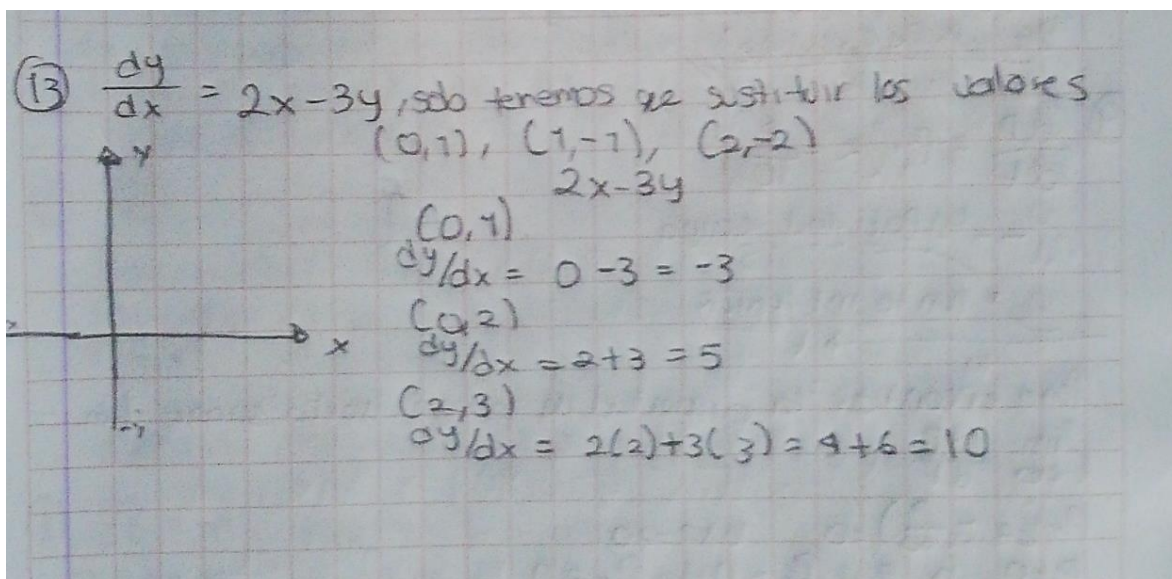 13 dy/dx = 2x-3y, solo tenemos que sustituir los valores
(0,1), (1,-1), (2,-2)
2x-3y
y
(0,1)
dy/dx = 0-3 = -3
(0,2)
x
dy/dx = 2+3 = 5
(2,3)
dy/dx = 2(2)+3(3) = 4+6 = 10